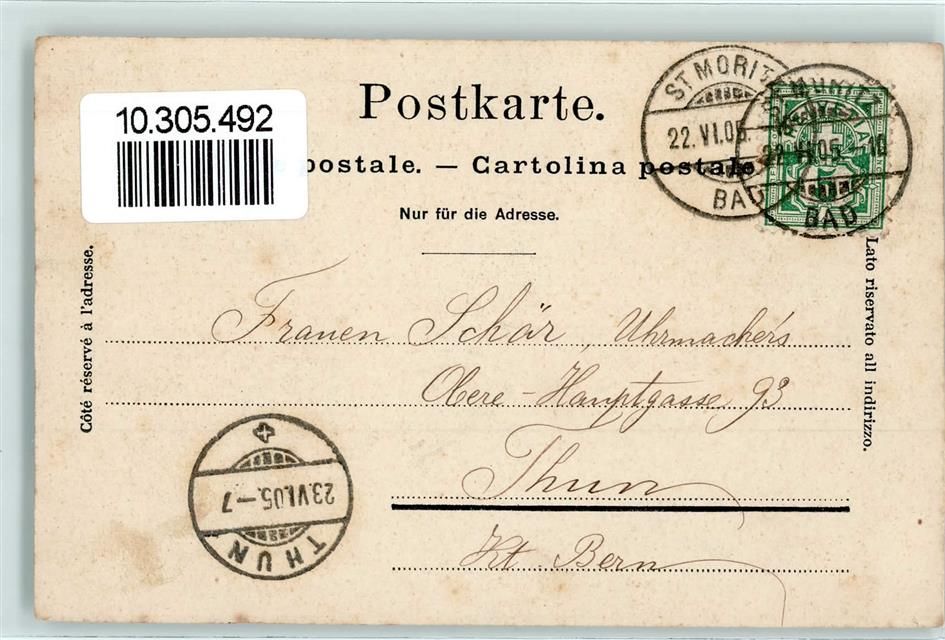 Postkarte.
10.305.492
postale. — Cartolina postale
Nur für die Adresse.
ST MORITZ
22.VI.05.
BAD
22.VI.05.-10
BAD
Côté réservé à l'adresse.
Lato riservato all indirizzo.
Frauen Schär, Uhrmacher's
Obere-Hauptgasse 93
Thun
Kt. Bern
23.VI.05.-7
THUN